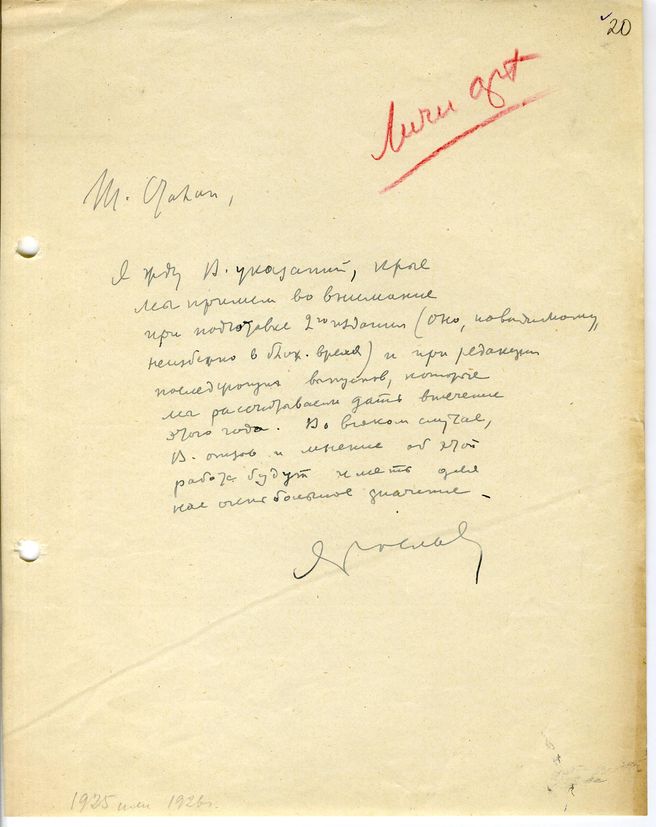 20
Личн арх
Т. Сталин,
Я жду В. указаний, крые
мы примем во внимание
при подготовке 2го издания (оно, повидимому,
неизбежно в ближ. время) и при редакции
последующих выпусков, которые
мы рассчитываем дать в течение
этого года. Во всяком случае,
В. отзыв и мнение об этой
работе будут иметь для
нас очень большое значение.
Ярослав
1925 или 1926г.